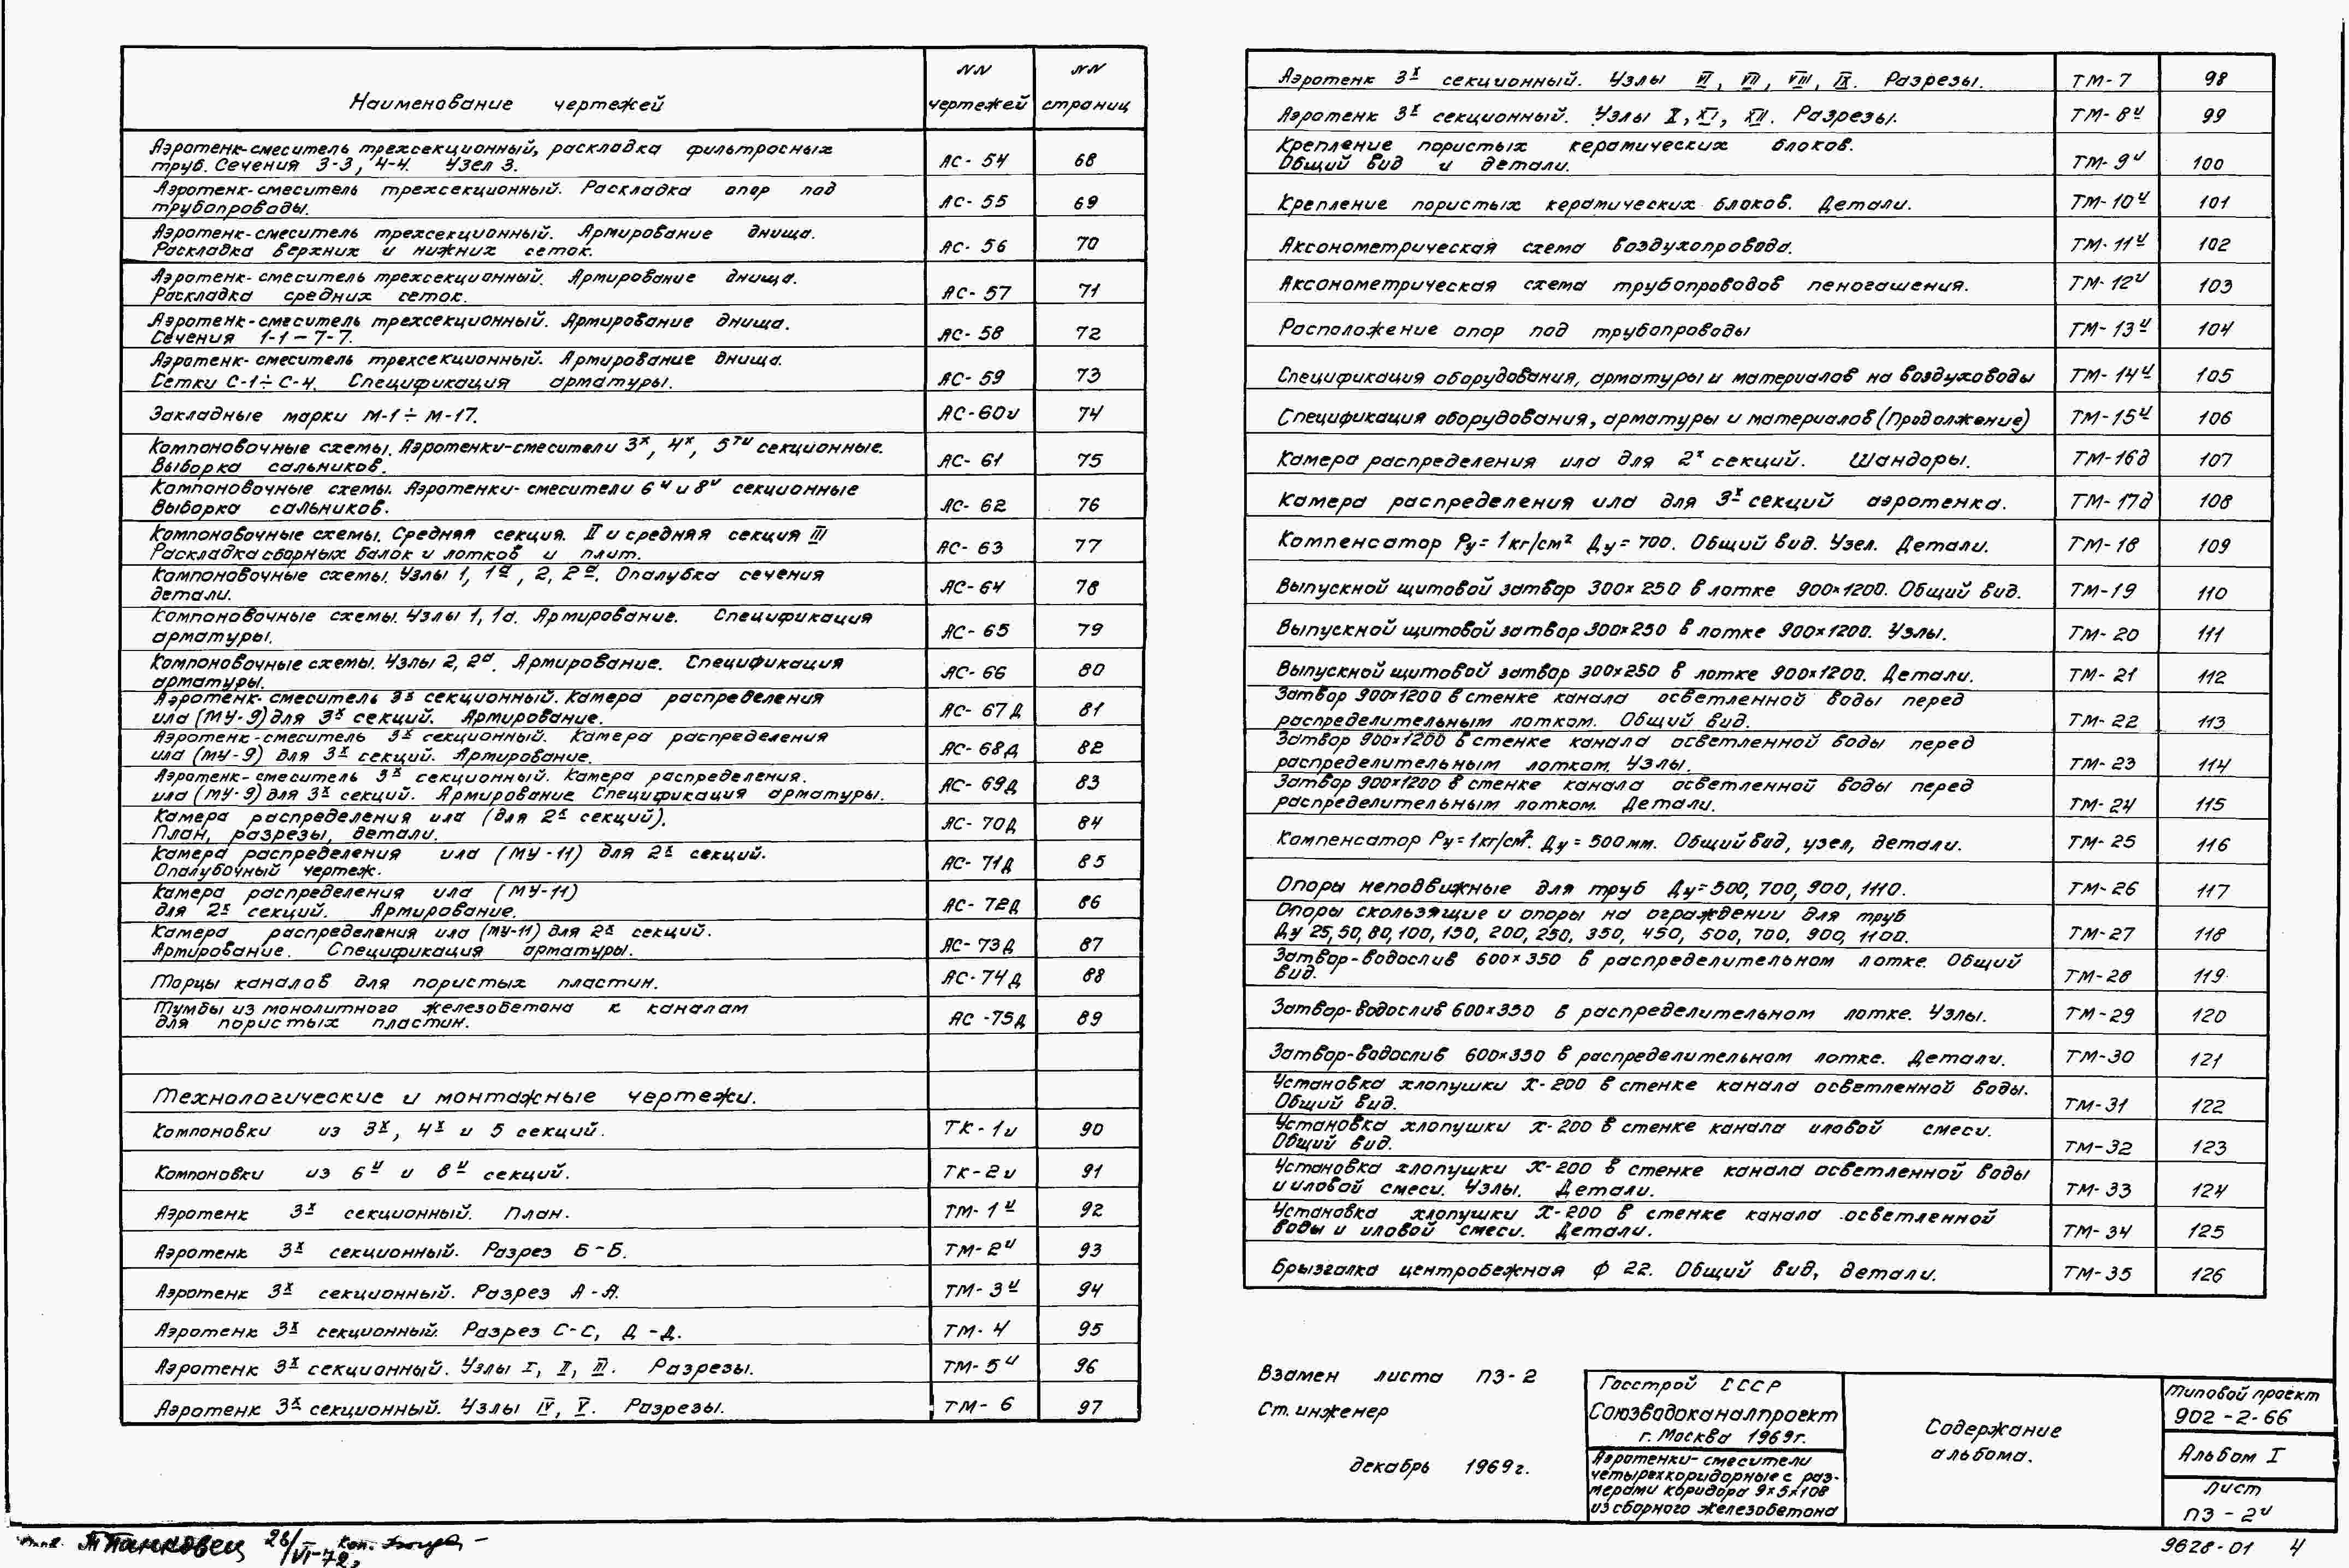 Наименование чертежей
NN чертежей
NN страниц
Аэротенк-смеситель трехсекционный, раскладка фильтросных
труб. Сечения 3-3, 4-4. Узел 3. АС-54 68
Аэротенк-смеситель трехсекционный. Раскладка опор под
трубопроводы. АС-55 69
Аэротенк-смеситель трехсекционный. Армирование днища.
Раскладка верхних и нижних сеток. АС-56 70
Аэротенк-смеситель трехсекционный. Армирование днища.
Раскладка средних сеток. АС-57 71
Аэротенк-смеситель трехсекционный. Армирование днища.
Сечения 1-1 – 7-7. АС-58 72
Аэротенк-смеситель трехсекционный. Армирование днища.
Сетки С-1÷С-4. Спецификация арматуры. АС-59 73
Закладные марки М-1÷М-17. АС-60и 74
Компоновочные схемы. Аэротенки-смесители 3х, 4х, 5ти секционные.
Выборка сальников. АС-61 75
Компоновочные схемы. Аэротенки-смесители 6и и 8и секционные
Выборка сальников. АС-62 76
Компоновочные схемы. Средняя секция II и средняя секция III
Раскладка сборных балок и лотков и плит. АС-63 77
Компоновочные схемы. Узлы 1, 1а, 2, 2а. Опалубка сечения
детали. АС-64 78
Компоновочные схемы. Узлы 1, 1а. Армирование. Спецификация
арматуры. АС-65 79
Компоновочные схемы. Узлы 2, 2а. Армирование. Спецификация
арматуры. АС-66 80
Аэротенк-смеситель 3х секционный. Камера распределения
ила (МУ-9) для 3х секций. Армирование. АС-67Д 81
Аэротенк-смеситель 3х секционный. Камера распределения
ила (МУ-9) для 3х секций. Армирование. АС-68Д 82
Аэротенк-смеситель 3х секционный. Камера распределения.
ила (МУ-9) для 3х секций. Армирование Спецификация арматуры. АС-69Д 83
Камера распределения ила (для 2х секций).
План, разрезы, детали. АС-70Д 84
Камера распределения ила (МУ-11) для 2х секций.
Опалубочный чертеж. АС-71Д 85
Камера распределения ила (МУ-11)
для 2х секций. Армирование. АС-72Д 86
Камера распределения ила (МУ-11) для 2х секций.
Армирование. Спецификация арматуры. АС-73Д 87
Торцы каналов для пористых пластин. АС-74Д 88
Тумбы из монолитного железобетона к каналам
для пористых пластин. АС-75Д 89
Технологические и монтажные чертежи.
Компоновки из 3х, 4х и 5 секций. ТК-1и 90
Компоновки из 6и и 8и секций. ТК-2и 91
Аэротенк 3х секционный. План. ТМ-1и 92
Аэротенк 3х секционный. Разрез Б-Б. ТМ-2и 93
Аэротенк 3х секционный. Разрез А-А. ТМ-3и 94
Аэротенк 3х секционный. Разрез С-С, Д-Д. ТМ-4 95
Аэротенк 3х секционный. Узлы I, II, III. Разрезы. ТМ-5и 96
Аэротенк 3х секционный. Узлы IV, V. Разрезы. ТМ-6 97
Аэротенк 3х секционный. Узлы VI, VII, VIII, IX. Разрезы. ТМ-7 98
Аэротенк 3х секционный. Узлы X, XI, XII. Разрезы. ТМ-8и 99
Крепление пористых керамических блоков.
Общий вид и детали. ТМ-9и 100
Крепление пористых керамических блоков. Детали. ТМ-10и 101
Аксонометрическая схема воздухопровода. ТМ-11и 102
Аксонометрическая схема трубопроводов пеногашения. ТМ-12и 103
Расположение опор под трубопроводы ТМ-13и 104
Спецификация оборудования, арматуры и материалов на воздуховоды ТМ-14и 105
Спецификация оборудования, арматуры и материалов (продолжение) ТМ-15и 106
Камера распределения ила для 2х секций. Шандоры. ТМ-16д 107
Камера распределения ила для 3х секций аэротенка. ТМ-17д 108
Компенсатор Ру=1кг/см² Ду=700. Общий вид. Узел. Детали. ТМ-18 109
Выпускной щитовой затвор 300×250 в лотке 900×1200. Общий вид. ТМ-19 110
Выпускной щитовой затвор 300×250 в лотке 900×1200. Узлы. ТМ-20 111
Выпускной щитовой затвор 300×250 в лотке 900×1200. Детали. ТМ-21 112
Затвор 900×1200 в стенке канала осветленной воды перед
распределительным лотком. Общий вид. ТМ-22 113
Затвор 900×1200 в стенке канала осветленной воды перед
распределительным лотком. Узлы. ТМ-23 114
Затвор 900×1200 в стенке канала осветленной воды перед
распределительным лотком. Детали. ТМ-24 115
Компенсатор Ру=1кг/см². Ду=500мм. Общий вид, узел, детали. ТМ-25 116
Опоры неподвижные для труб Ду=500, 700, 900, 1110. ТМ-26 117
Опоры скользящие и опоры на ограждении для труб
Ду 25, 50, 80, 100, 150, 200, 250, 350, 450, 500, 700, 900, 1100. ТМ-27 118
Затвор-водослив 600×350 в распределительном лотке. Общий
вид. ТМ-28 119
Затвор-водослив 600×350 в распределительном лотке. Узлы. ТМ-29 120
Затвор-водослив 600×350 в распределительном лотке. Детали. ТМ-30 121
Установка хлопушки Х-200 в стенке канала осветленной воды.
Общий вид. ТМ-31 122
Установка хлопушки Х-200 в стенке канала иловой смеси.
Общий вид. ТМ-32 123
Установка хлопушки Х-200 в стенке канала осветленной воды
и иловой смеси. Узлы. Детали. ТМ-33 124
Установка хлопушки Х-200 в стенке канала осветленной
воды и иловой смеси. Детали. ТМ-34 125
Брызгалка центробежная ф 22. Общий вид, детали. ТМ-35 126
Взамен листа ПЗ-2
Ст. инженер
декабрь 1969г.
Госстрой СССР
Союзводоканалпроект
г. Москва 1969г.
Аэротенки-смесители
четырехкоридорные с раз-
мерами коридора 9×5×108
из сборного железобетона
Содержание
альбома.
Типовой проект
902-2-66
Альбом I
Лист
ПЗ-2и
9628-01 4
26/VI-72г. Коп.